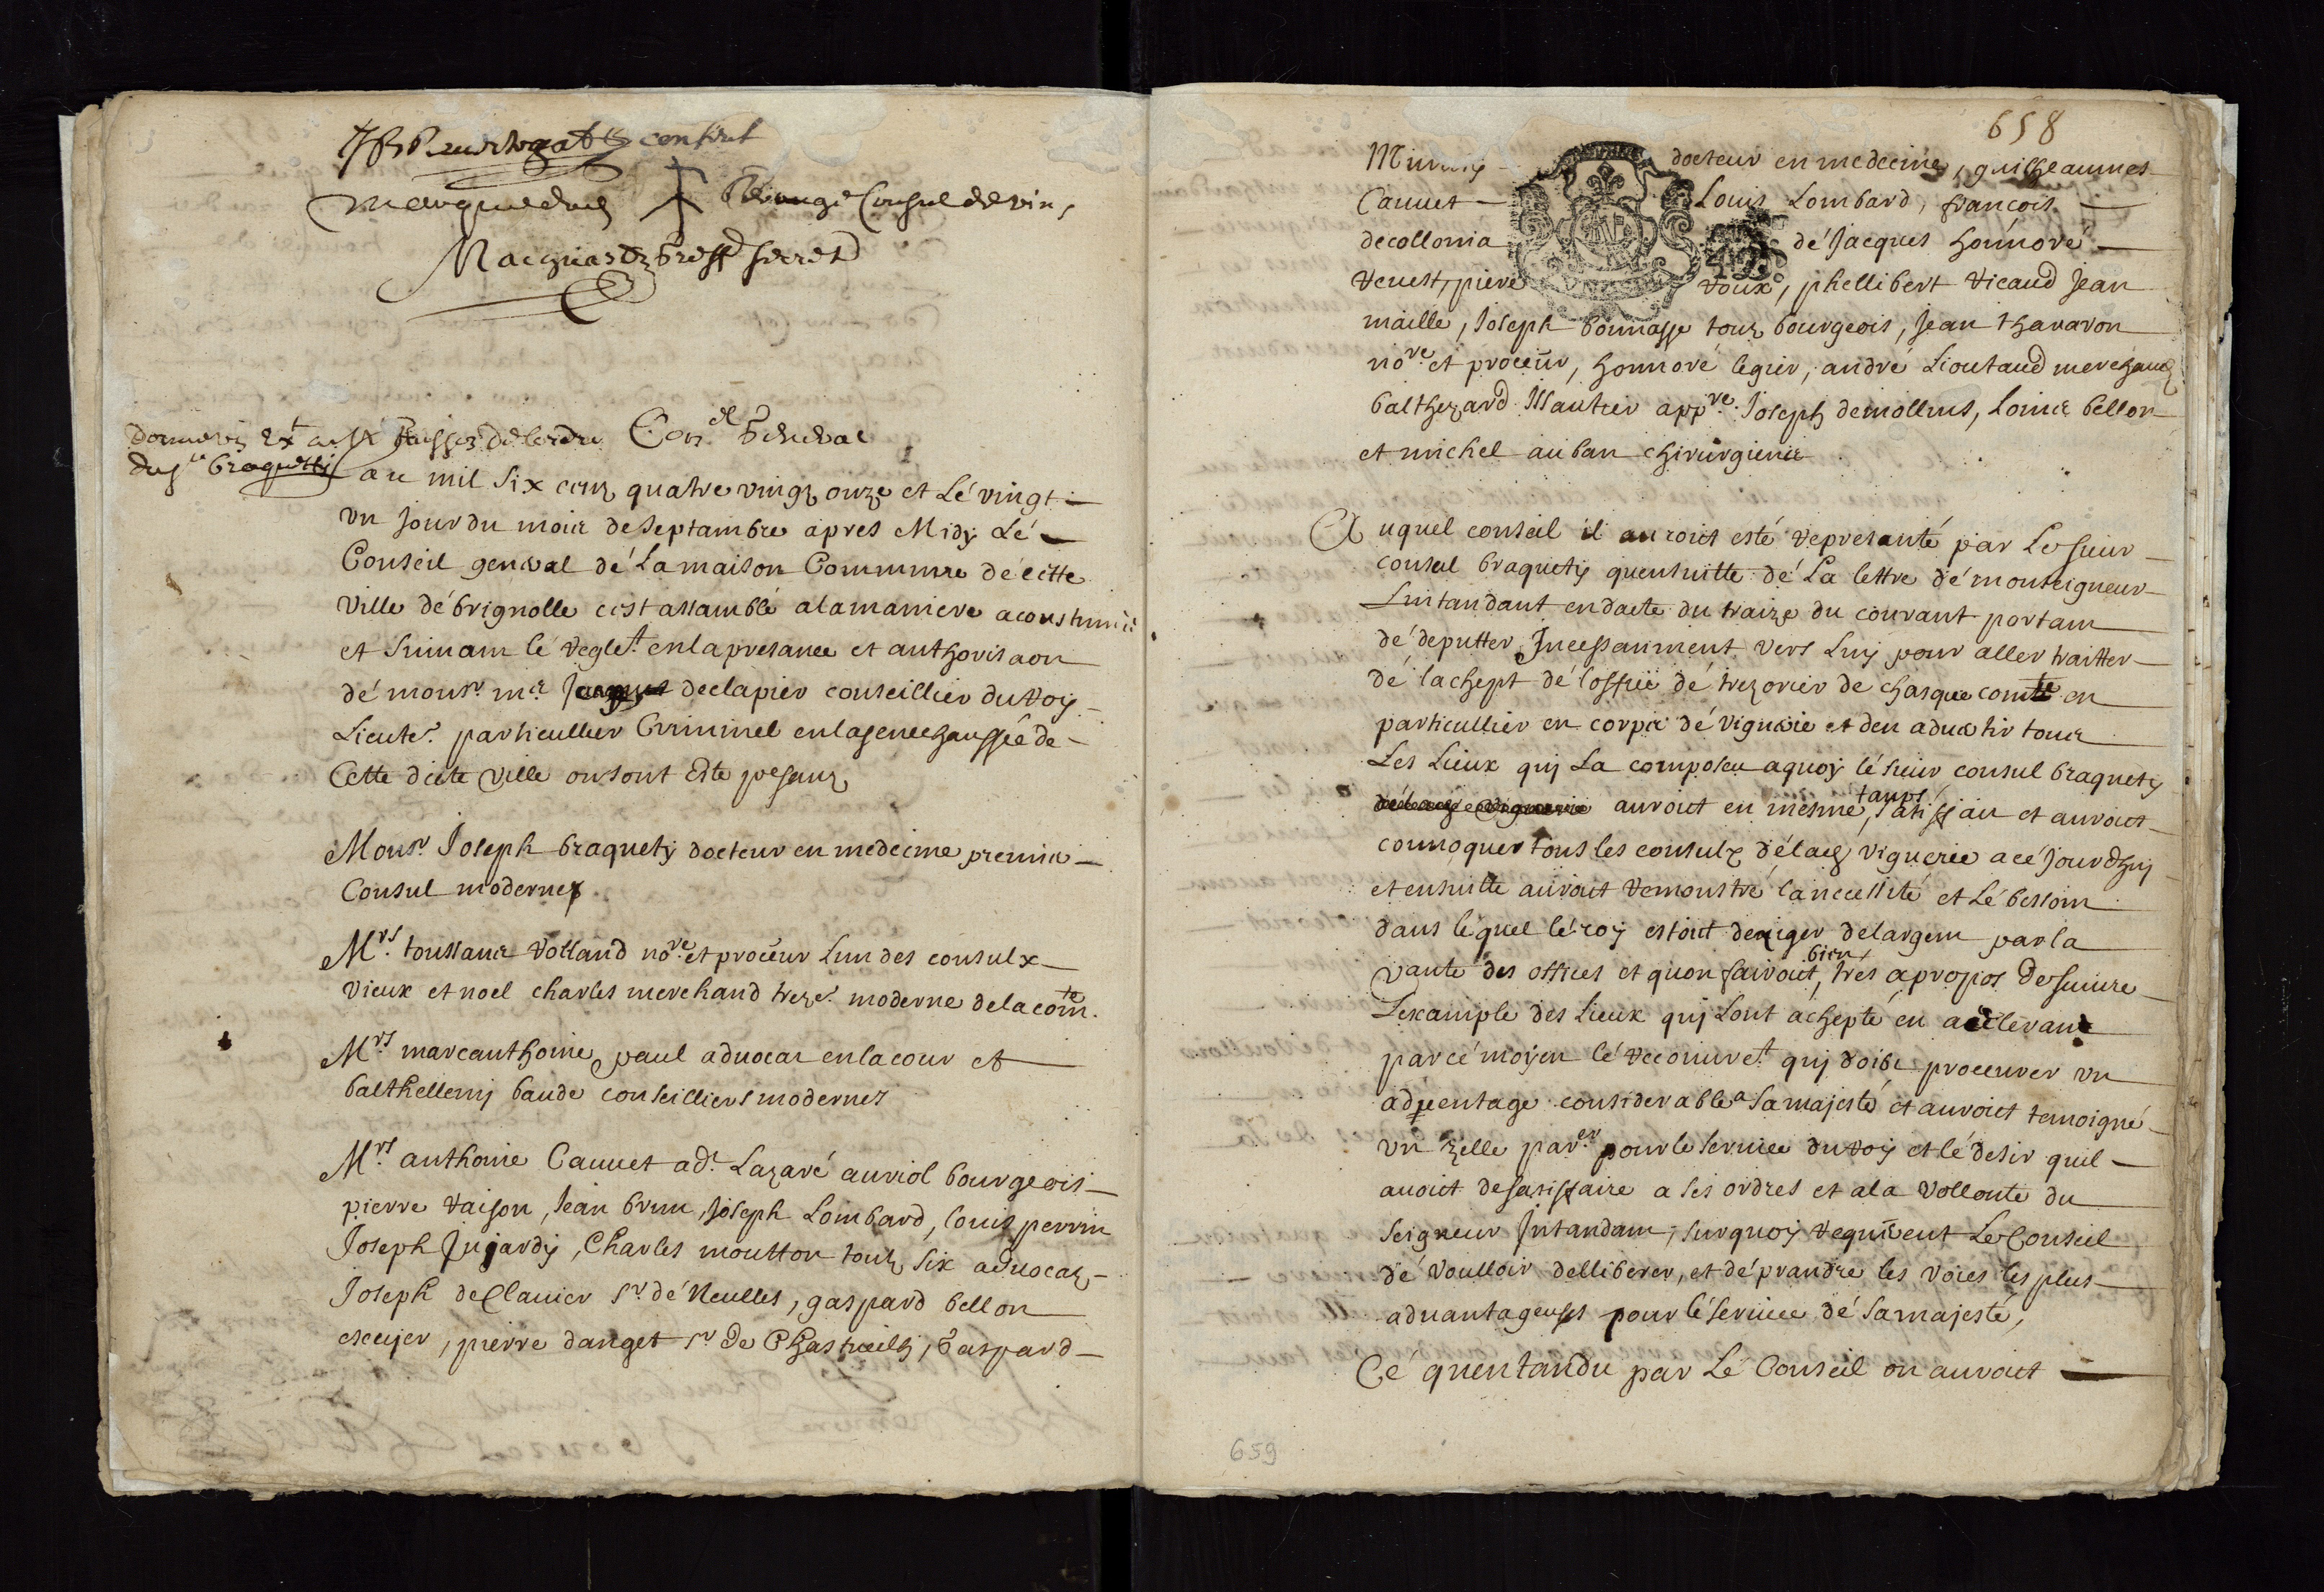 consul
Consul de vins
Macquarty greff secret
Con.el General
donné ext a
du sr braquetti
an mil six cens quatre vingt onze et Lé vingt
vn jour du mois de septambre apres Midy Lé
Conseil general dé La maison Commune dé cette
ville dé brignolle cest assamblé a la maniere acoustumée
et suiuam lé reglet enla presance et authorisaon
dé monsr. mr declapier conseillier du roy
Lieuter. particullier Criminel en la senechaussée de
Cette dicte ville ou sont Este presans
Monsr. Joseph braquety docteur en medecine premier
Consul moderne
Mrs. toussans rolland nore. et proceur Lun des consulx
vieux et noel charles merchand trezer. moderne de la comte.
Mrs. marcanthoine paul aduocat en la cour et
balthellemy baude conseilliers modernes
Mrs. anthoine Cauuet adt Lazaré auriol bourgeois
pierre vaison, Jean brun, Joseph Lombard, louis perrin
Joseph Jujardy, Charles moutton tous six aduocas
Joseph de Clauier sr dé Neulles, gaspard bellon
escuyer, pierre danget sr de Chasteuilh, Gaspard
658
docteur en medecine, guilheaumes
Cauuet Louis Lombard, françois
decollonia dé Jacques honnoré
venest, piere roux, phellibert vicaud Jean
maille, Joseph bonnasse tous bourgeois, Jean thauaron
nore. et proceur, honnoré legier, andré Lioutaud merchands
balthezard Issautier appre. Joseph demollins, Louis bellon
et michel auban chirurgiens
Auquel conseil il auroit esté represanté par Le sieur
consul braquety quensuitte dé La lettre dé monseigneur
Lintandant en dacte du traize du courant portam
dé deputter Jncessanment vers Luy pour aller traitter
dé lachept dé loffice dé trezorier de chasque comte en
particullier en corps dé viguerie et den aduertir tous
Les Lieux quy La composen a quoy lé sieur consul braquety
auroit en mesme tamps satisfait et auroit
conuoquer tous les consulz dé lad viguerie a cé jourdhuy
et ensuitte auroit remonstré la necessité et Lé bessoin
dans léquel lé roy estoit dexiger delargem par la
vante des offices et quon fairoit bien, tres a propos De suiure
Lexample des Lieux quy Lont achepté en accellerant
par cé moyen lé recouuret quy doibt proceurer vn
aduentage considerable a sa majesté et auroit temoigné
vn zelle parer. pour le seruice du roy et lé desir quil
auoit de satisfaire a ses ordres et a la vollonte du
seigneur Jntandam, surquoy requirent Le Conseil
dé voulloir delliberer, et dé prandre les voies les plus
aduantageuses pour lé seruice dé sa majesté,
Cé quentandu par Lé Conseil on auroit
659